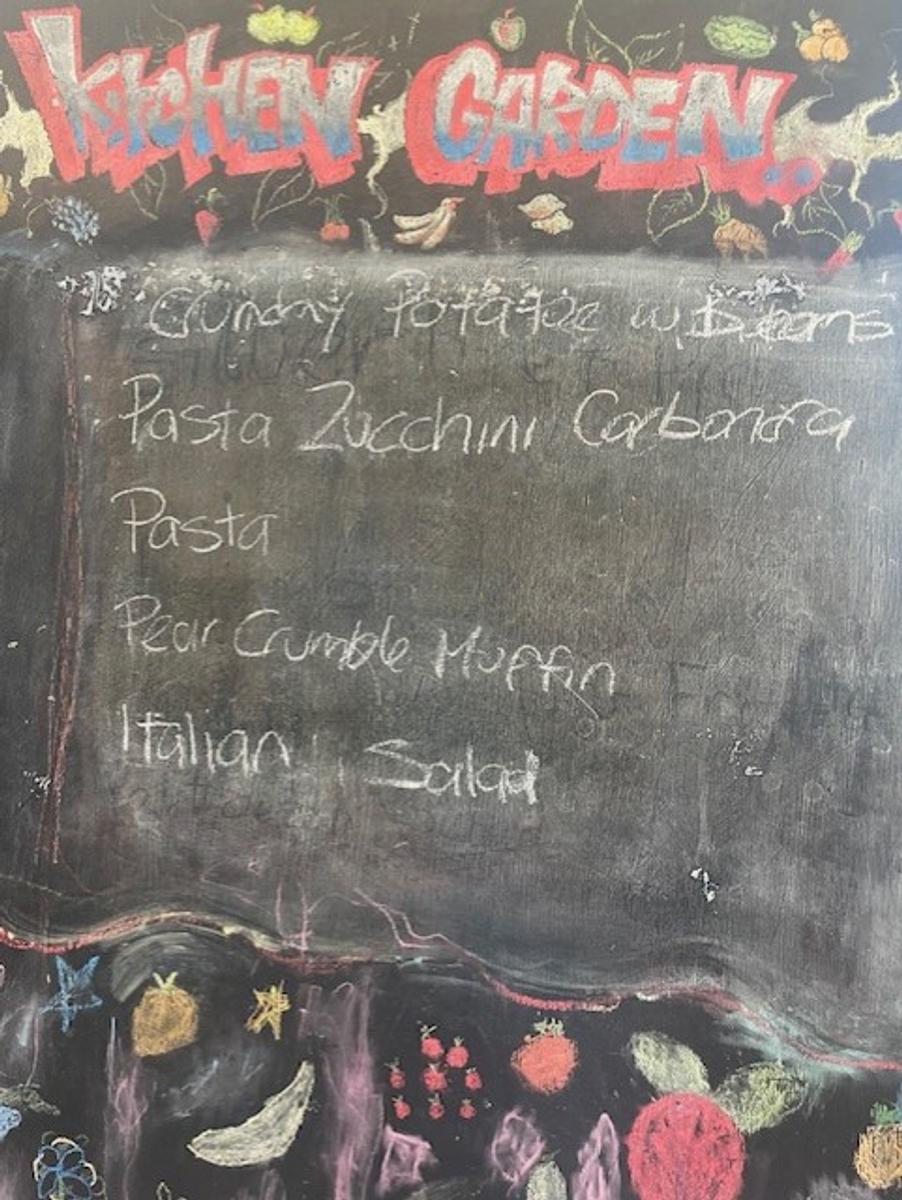 KitCHEN GARDEN..
Potatoe w
Pasta Zucchini Carbonara
Pasta
Pear Crumble Muffin
Italian Salad